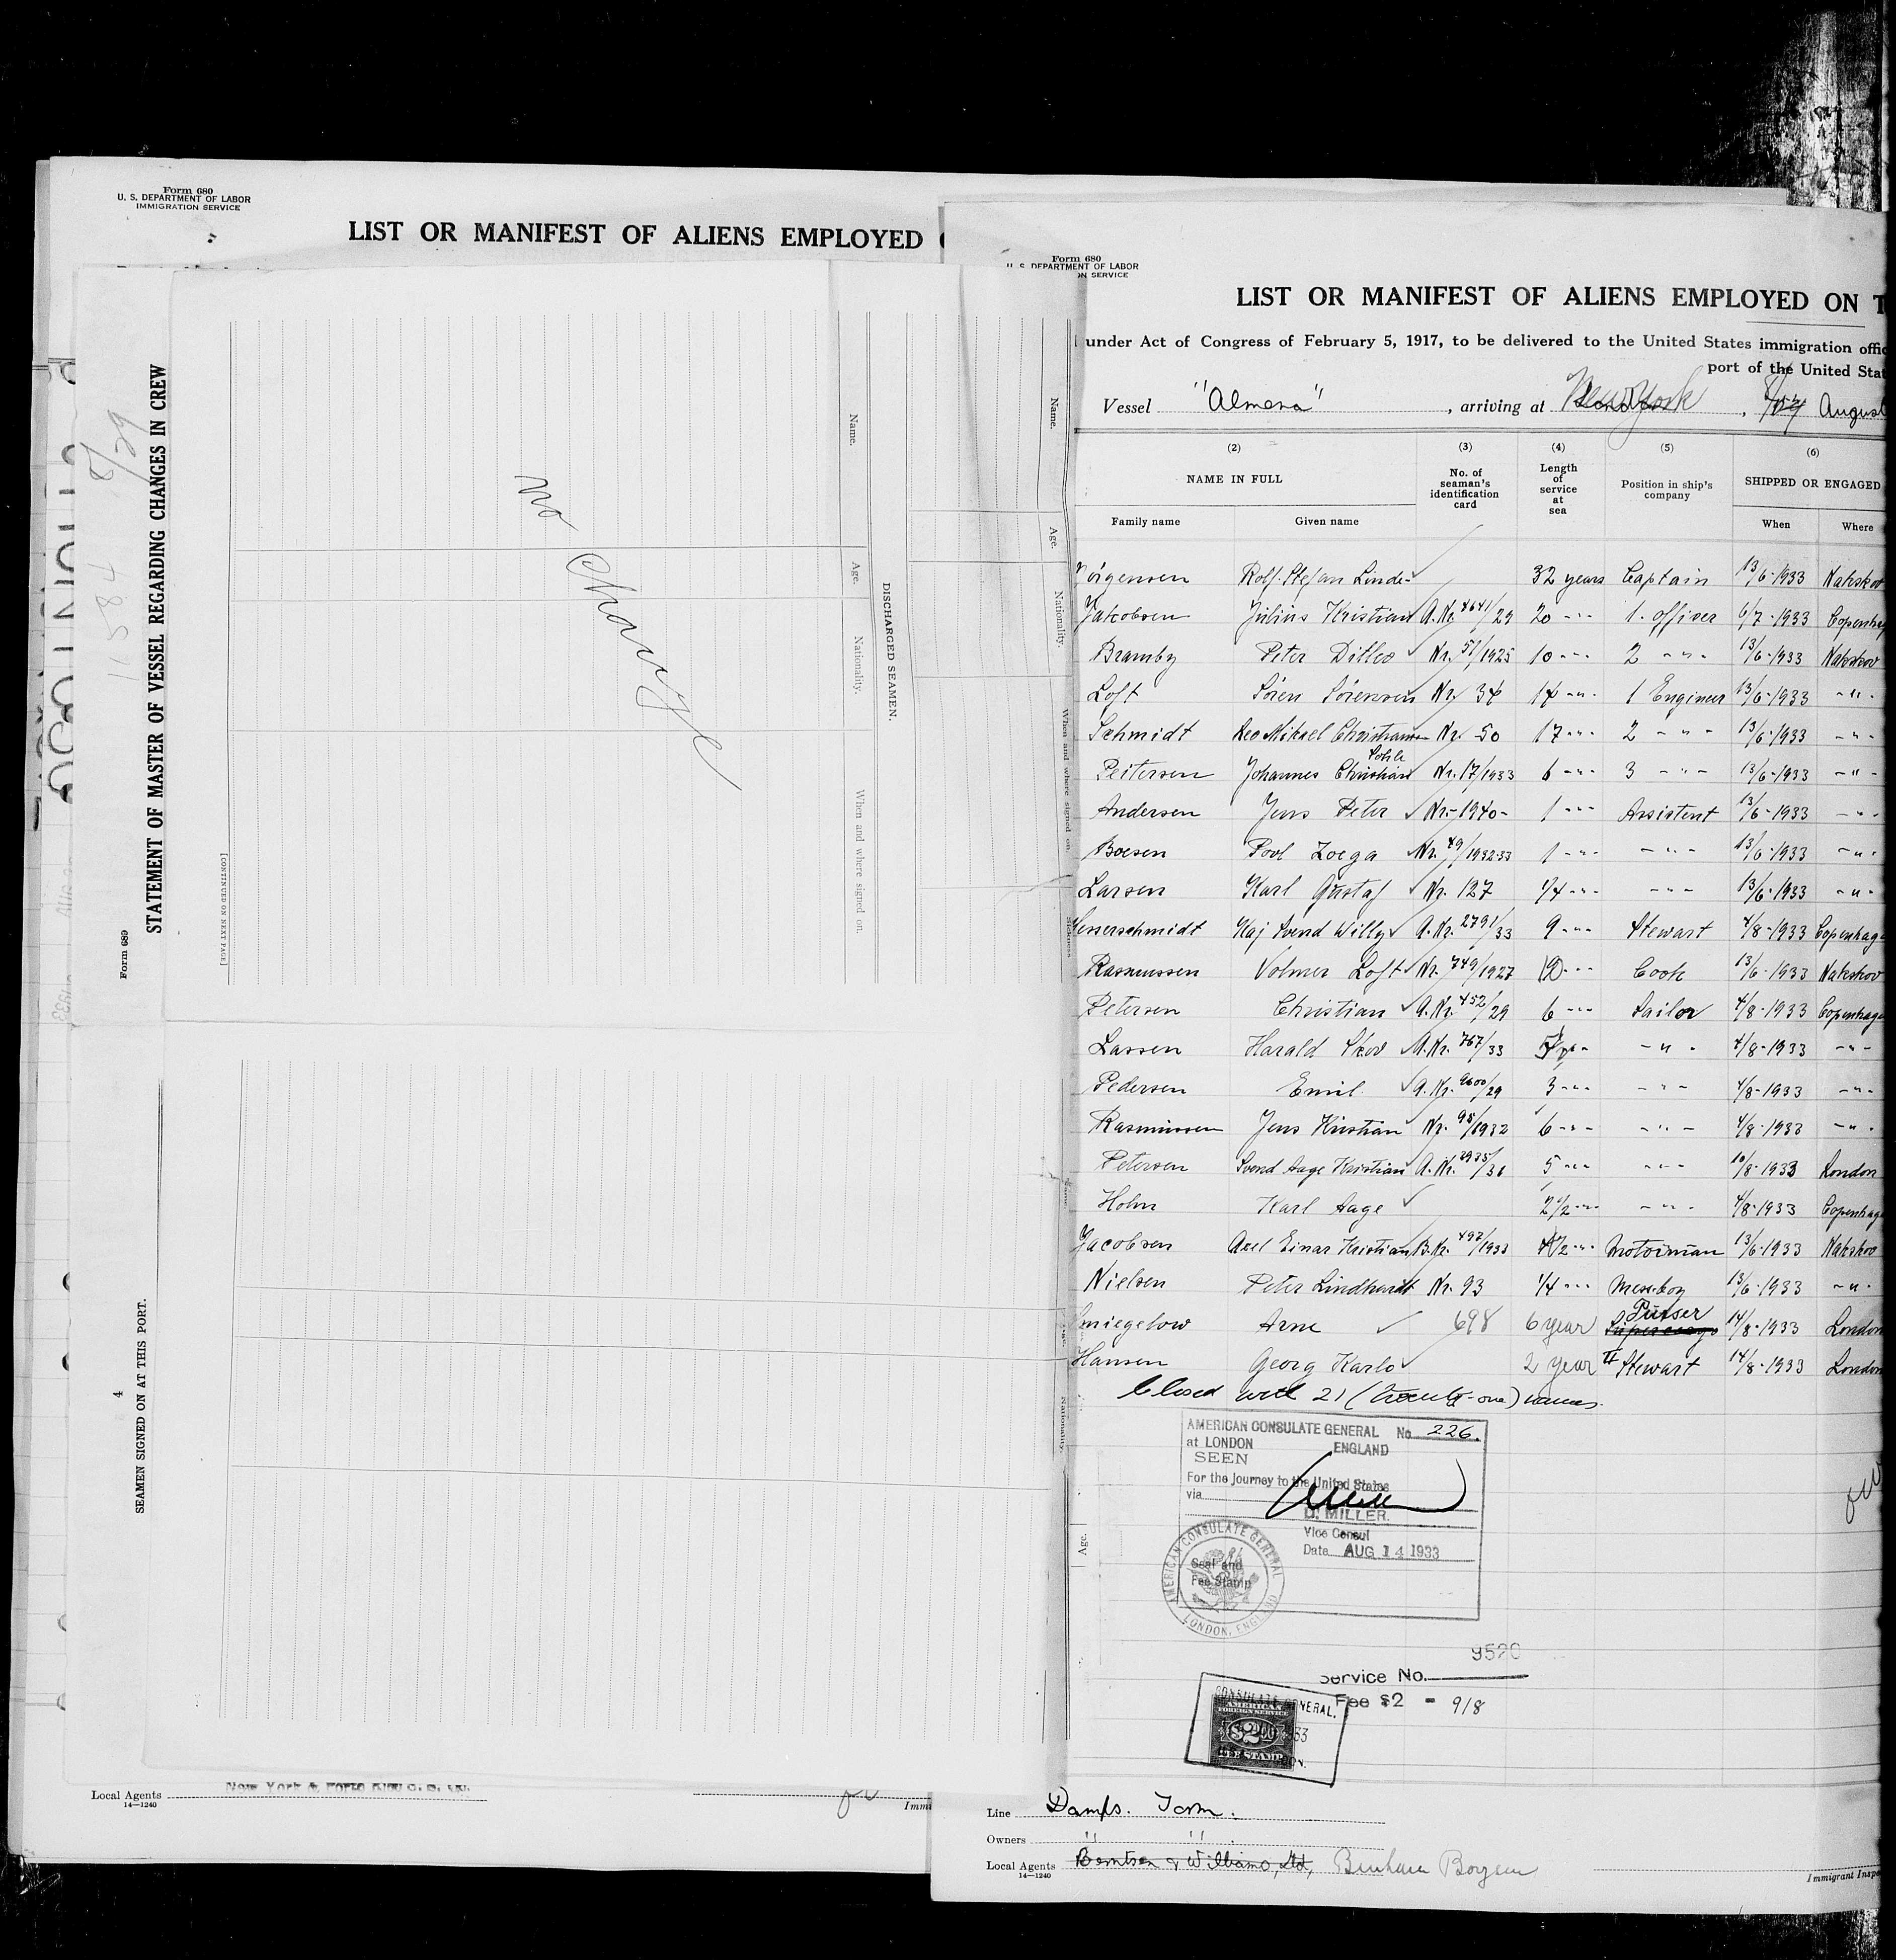 Form 680
U. S. DEPARTMENT OF LABOR
IMMIGRATION SERVICE
LIST OR MANIFEST OF ALIENS EMPLOYED
8/29
STATEMENT OF MASTER OF VESSEL REGARDING CHANGES IN CREW
Form 689
[CONTINUED ON NEXT PAGE]
no change
Name.
Age.
Nationality.
When and where signed on.
DISCHARGED SEAMEN.
Name.
Age.
Nationality.
When and where signed on.
4
SEAMEN SIGNED ON AT THIS PORT.
Nationality.
Age.
Local Agents New York & Porto Rico S. S. Co.
14—1240
Form 680
U. S. DEPARTMENT OF LABOR
ON SERVICE
LIST OR MANIFEST OF ALIENS EMPLOYED ON T
under Act of Congress of February 5, 1917, to be delivered to the United States immigration offic
port of the United Stat
Vessel "Almena", arriving at New York, August
(2) (3) (4) (5) (6)
NAME IN FULL No. of seaman's identification card Length of service at sea Position in ship's company SHIPPED OR ENGAGED
Family name Given name When Where
Jörgensen Rolf Stefan Linde- 32 years Captain 13/6-1933 Nakskov
Jakobsen Julius Kristian A.Nr. 4641/29 20 -"- 1. officer 6/7-1933 Copenhag
Bramby Peter Ditlev Nr. 51/1925 10 -"- 2 -"- 13/6-1933 Nakskov
Loft Sören Sörensen Nr. 34 14 -"- 1 Engineer 13/6-1933 -"-
Schmidt Leo Mikael Christiansen Nr. 50 17 -"- 2 -"- 13/6-1933 -"-
Peitersen Johannes Christian Nr. 17/1933 6 -"- 3 -"- 13/6-1933 -"-
Andersen Jens Peter Nr.-1940- 1 -"- Assistent 13/6-1933 -"-
Boesen Povl Zoega Nr. 49/1932-33 1 -"- -"- 13/6-1933 -"-
Larsen Karl Gustaf Nr. 127 1/4 -"- -"- 13/6-1933 -"-
enerschmidt Kaj Svend Willy A.Nr. 2791/33 9 -"- Stewart 4/8-1933 Copenhage
Rasmussen Volmer Loft Nr. 749/1927 -"- Cook 13/6-1933 Nakskov
Petersen Christian A.Nr. 452/29 6 -"- Sailor 4/8-1933 Copenhage
Lassen Harald Skov A.Nr. 767/33 -"- 4/8-1933 -"-
Pedersen Emil A.Nr. 9600/29 3 -"- -"- 4/8-1933 -"-
Rasmussen Jens Kristian Nr. 98/1932 6 -"- -"- 4/8-1933 -"-
Petersen Svend Aage Kristian A.Nr. 2935/31 5 -"- -"- 10/8-1933 London
Holm Karl Aage 2 1/2 -"- -"- 4/8-1933 Copenhage
Jacobsen Axel Einar Kristian B.Nr. 497/1933 -"- Motorman 13/6-1933 Nakskov
Nielsen Peter Lindhardt Nr. 93 1/4 -"- Messboy 13/6-1933 -"-
miegelow Arne 698 6 year Purser 14/8-1933 London
Hansen Georg Karlo 2 year II Stewart 14/8-1933 London
Closed with 21 (twenty-one) names.
AMERICAN CONSULATE GENERAL No. 226.
at LONDON ENGLAND
SEEN
For the journey to the United States
via
D. MILLER.
Vice Consul
Date AUG 14 1933
Seal and
Fee Stamp
AMERICAN CONSULATE GENERAL LONDON, ENGLAND
9520
Service No.
Fee $2 = 9/8
CONSULATE GENERAL.
AMERICAN
FOREIGN SERVICE
$2.00
FEE STAMP
Line Damps. Torm.
Owners " "
Local Agents Berntsen & Williams, Ltd,
14—1240
Immigrant Inspe